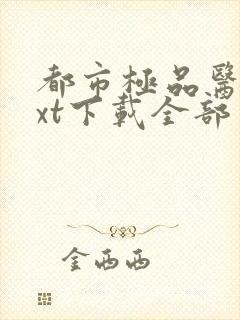 都市極品醫
xt下載全部
金西西